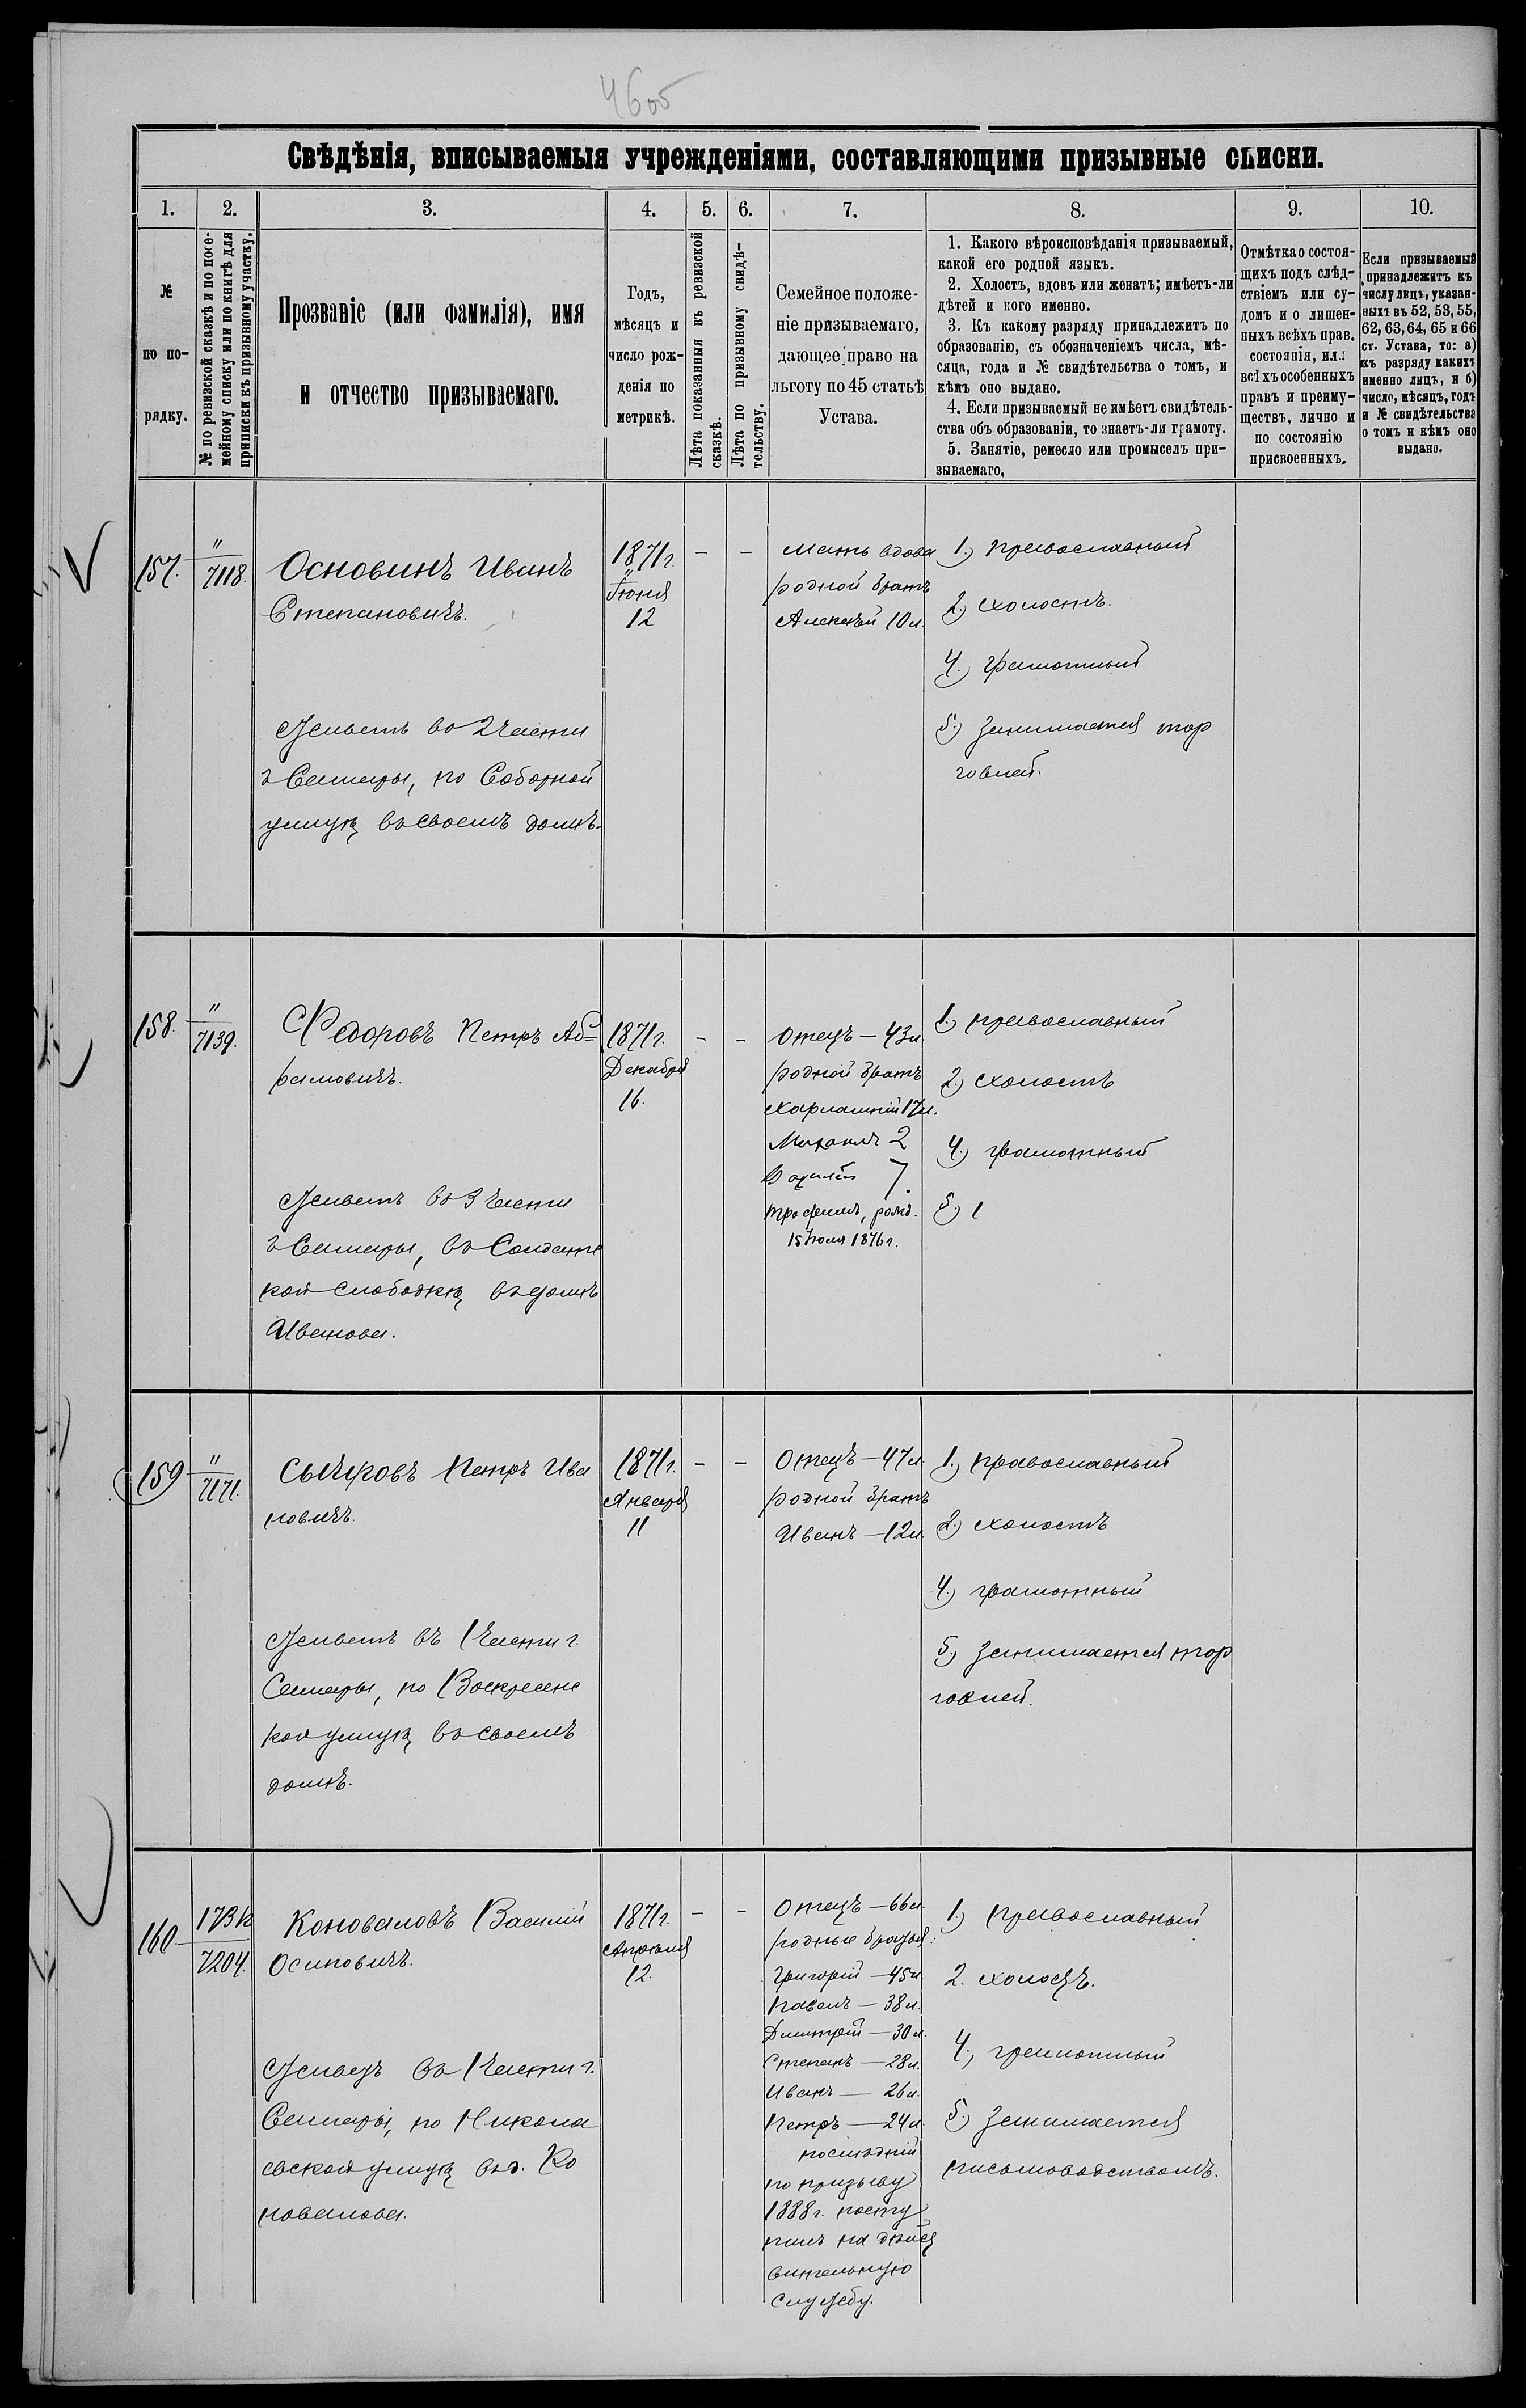 46об
Свѣдѣнія, вписываемыя учрежденіями, составляющими призывные списки.
1. 2. 3. 4. 5. 6. 7. 8. 9. 10.
№
по по-
рядку.
№ по ревизской сказкѣ и по посе-
мейному списку или по книгѣ для
приписки къ призывному участку.
Прозваніе (или фамилія), имя
и отчество призываемаго.
Годъ,
мѣсяцъ и
число рож-
денія по
метрикѣ.
Лѣта показанныя въ ревизской
сказкѣ.
Лѣта по призывному свидѣ-
тельству.
Семейное положе-
ніе призываемаго,
дающее право на
льготу по 45 статьѣ
Устава.
1. Какого вѣроисповѣданія призываемый,
какой его родной языкъ.
2. Холостъ, вдовъ или женатъ; имѣетъ-ли
дѣтей и кого именно.
3. Къ какому разряду принадлежитъ по
образованію, съ обозначеніемъ числа, мѣ-
сяца, года и № свидѣтельства о томъ, и
кѣмъ оно выдано.
4. Если призываемый не имѣетъ свидѣтель-
ства объ образованіи, то знаетъ-ли грамоту.
5. Занятіе, ремесло или промыселъ при-
зываемаго.
Отмѣтка о состоя-
щихъ подъ слѣд-
ствіемъ или су-
домъ и о лишен-
ныхъ всѣхъ прав.
состоянія, или
всѣхъ особенныхъ
правъ и преиму-
ществъ, лично и
по состоянію
присвоенныхъ.
Если призываемый
принадлежитъ къ
числу лицъ, указан-
ныхъ въ 52, 53, 55,
62, 63, 64, 65 и 66
ст. Устава, то: а)
къ разряду какихъ
именно лицъ, и б)
число, мѣсяцъ, годъ
и № свидѣтельства
о томъ и кѣмъ оно
выдано.
157.
"
7118.
Основинъ Иванъ
Степановичъ.
Живетъ во 2 части
г Самары, по Соборной
улицѣ въ своемъ домѣ.
1871 г.
Іюня
12
– –
мать вдова
родной братъ
Алексѣй 10 л.
1.) православный
2.) холостъ.
4.) грамотный
5.) Занимается тор
говлей.
158.
"
7139.
Федоровъ Петръ Аб=
рамовичъ.
Живетъ въ 3 части
г Самары, въ Солдатс
кой слободкѣ, въ домѣ
Иванова.
1871 г.
Декабря
16.
– –
отецъ – 43 л.
родной братъ
Харлампій 17 л.
Михаилъ 2
7.
Трофимъ, рожд.
1876 г.
1.) православный
2.) холостъ
4.) грамотный
5.)
159
"
7171.
Сычуровъ Петръ Ива
новичъ.
Живетъ въ 1 части г.
Самары, по Воскресенс
кой улицѣ, въ своемъ
домѣ.
1871 г.
Января
11
– –
Отецъ – 47 л.
родной братъ
Иванъ – 12 л.
1.) православный
2.) холостъ
4.) грамотный
5.) Занимается тор
говлей.
160
173 1/2
7204.
Коноваловъ Василій
Осиповичъ.
Живетъ въ 1 части г.
Самары, по Никола
евской улицѣ, въ д. Ко
новалова.
1871 г.
Апрѣля
12.
– –
Отецъ – 66 л.
родные братья:
Григорій – 45 л.
Павелъ – 38 л.
Дмитрій – 30 л.
Степанъ – 28 л.
Иванъ – 26 л.
Петръ – 24 л.
послѣдній
по призыву
1888 г. посту
пилъ на дѣйст
вительную
службу.
1.) православный
2. холостъ.
4.) грамотный
5.) Занимается
письмоводствомъ.